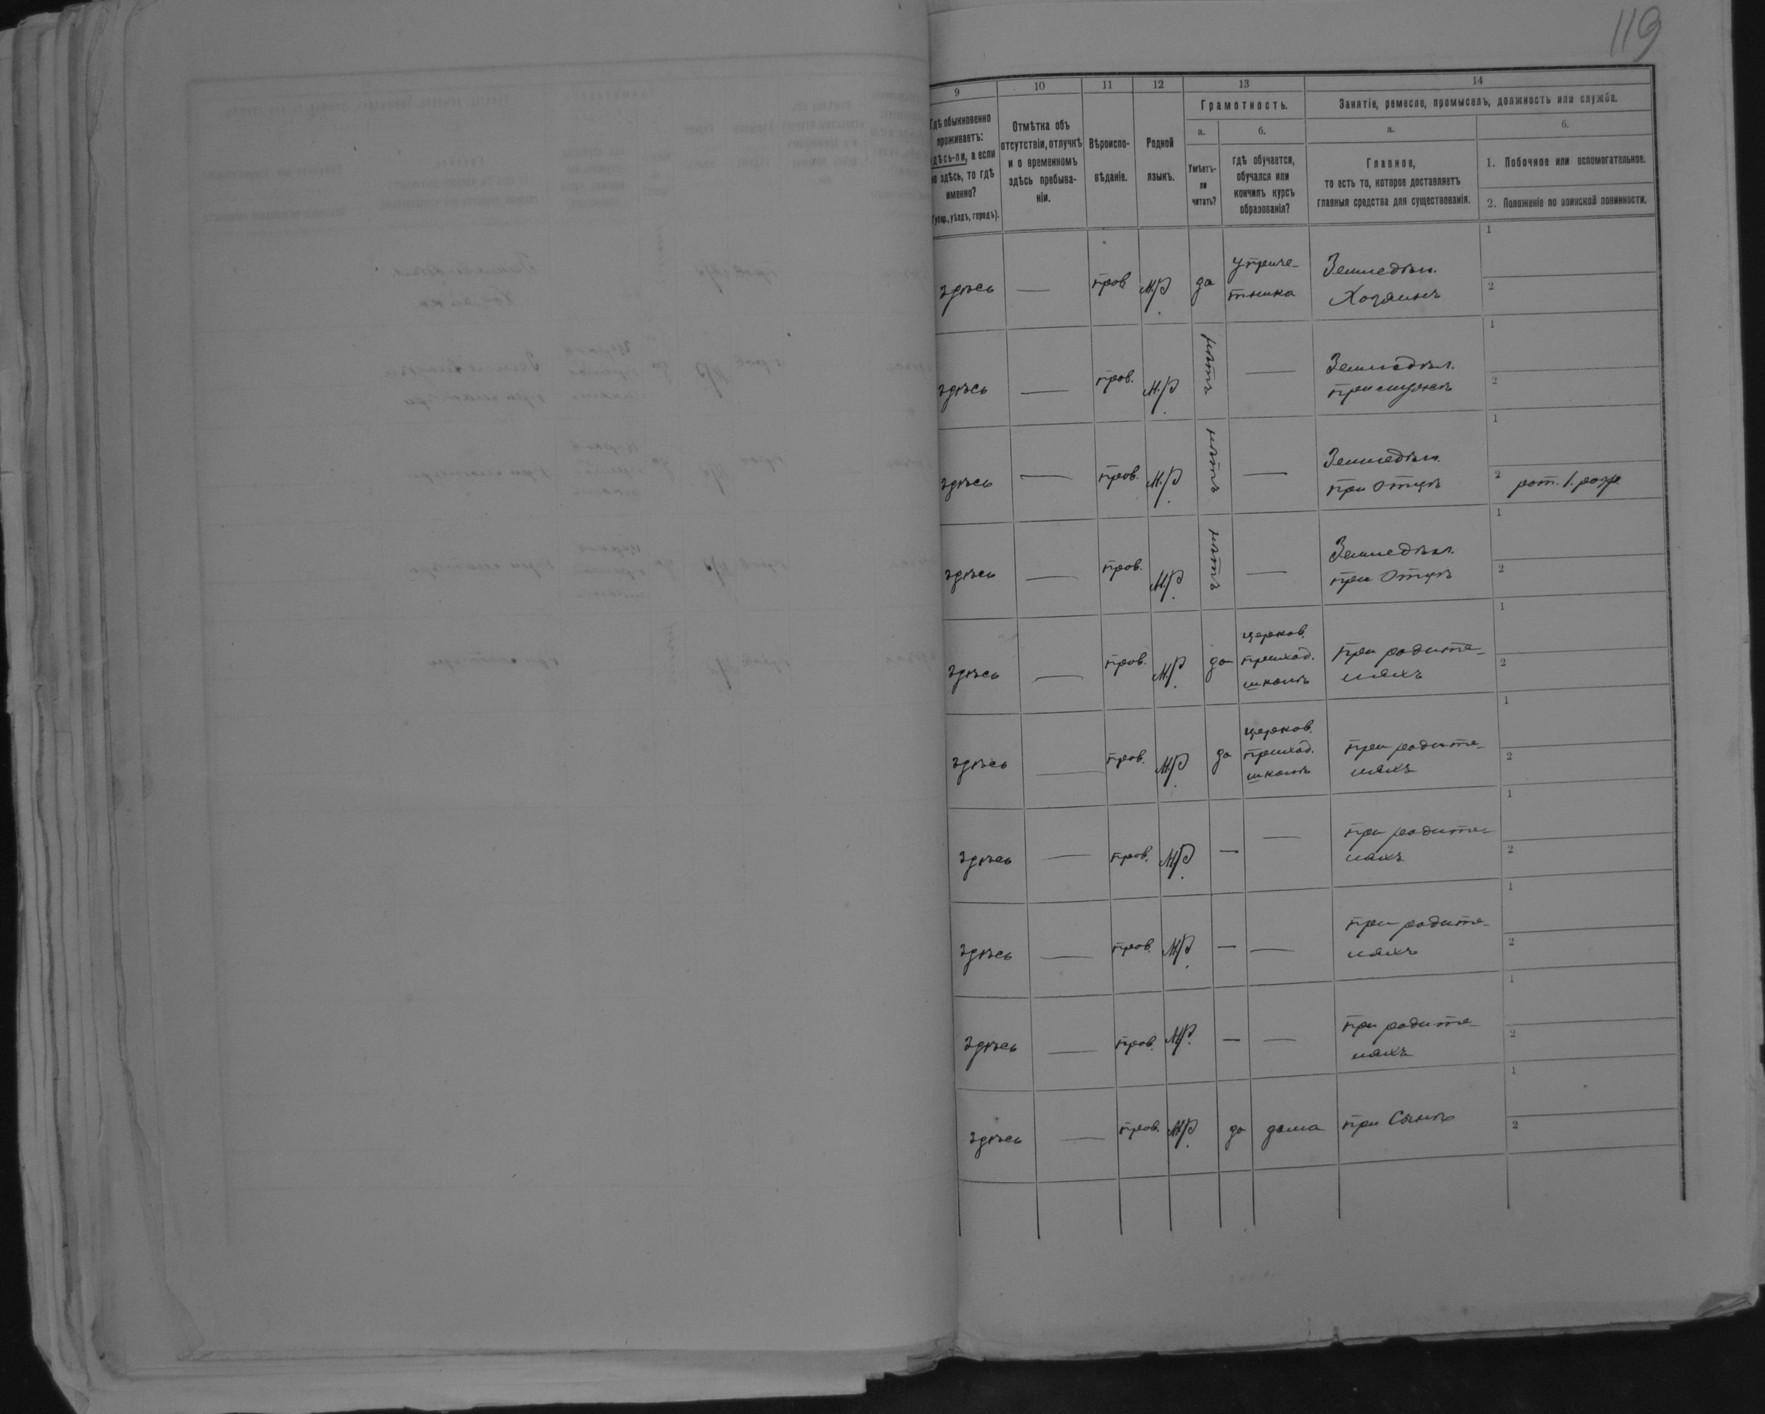 119
9 10 11 12 13 14
Гдѣ обыкновенно
проживаетъ:
здѣсь-ли, а если
не здѣсь, то гдѣ
именно?
(губер., уѣздъ, городъ).
Отмѣтка объ
отсутствіи, отлучкѣ
и о временномъ
здѣсь пребыва-
ніи.
Вѣроиспо-
вѣданіе.
Родной
языкъ.
Грамотность.
а.
Умѣетъ-
ли
читать?
б.
гдѣ обучается,
обучался или
кончилъ курсъ
образованія?
Занятіе, ремесло, промыселъ, должность или служба.
а.
Главное,
то есть то, которое доставляетъ
главныя средства для существованія.
б.
1. Побочное или вспомогательное.
2. Положеніе по воинской повинности.
здѣсь — прав М/Р. да у приче-
тника
Земледѣл.
Хозяинъ
1
2
здѣсь — прав. М./Р. нѣтъ —
Земледѣл.
1
2
здѣсь — прав. М./Р. нѣтъ —
Земледѣл.
при отцѣ
1
2 рат. 1. разр
здѣсь — прав. М./Р. нѣтъ —
Земледѣл.
при отцѣ
1
2
здѣсь — прав. М/Р. да церков.
приход.
школѣ
при родите-
ляхъ
1
2
здѣсь — прав. М/Р. да церков.
приход.
школѣ
при родите-
ляхъ
1
2
здѣсь — прав. М/Р. — —
при родите-
ляхъ
1
2
здѣсь — прав. М/Р. — —
при родите-
ляхъ
1
2
здѣсь — прав. М/Р. — —
при родите-
ляхъ
1
2
здѣсь — прав. М/Р. да дома при Сынѣ
1
2